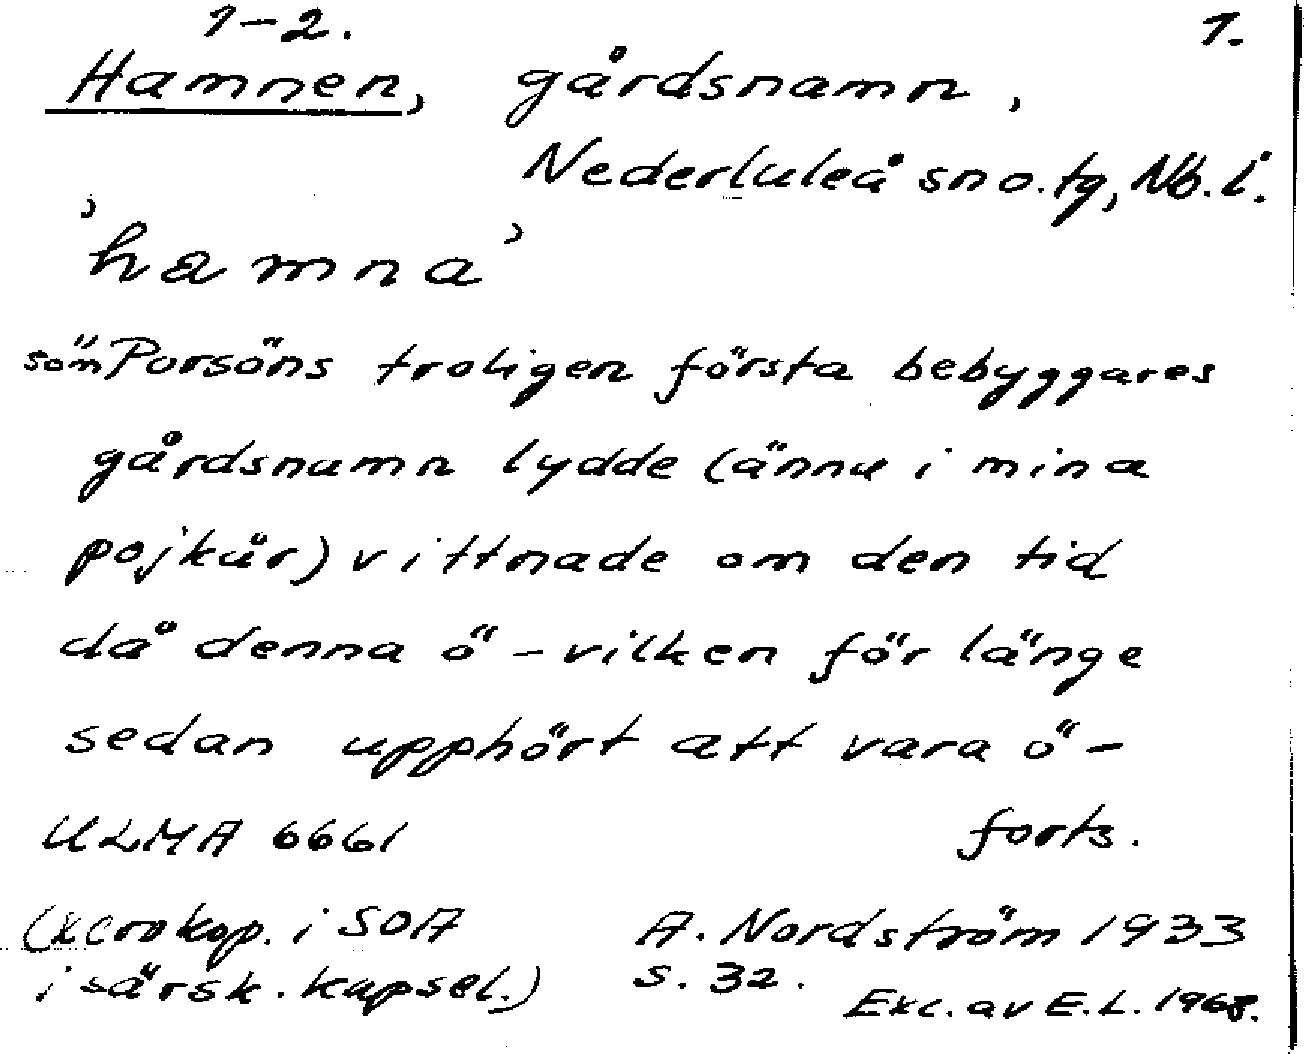 1-2. 1.
Hamnen, gårdsnamn,
Nederluleå sn o. tg, Nb. l.
'hamna'
som Porsöns troligen första bebyggares
gårdsnamn lydde (ännu i mina
pojkår) vittnade om den tid
då denna ö - vilken för länge
sedan upphört att vara ö -
ULMA 6661 forts.
(xerokop. i SOA A. Nordström 1933
i särsk. kapsel.) s. 32.
Exc. av E.L. 1968.